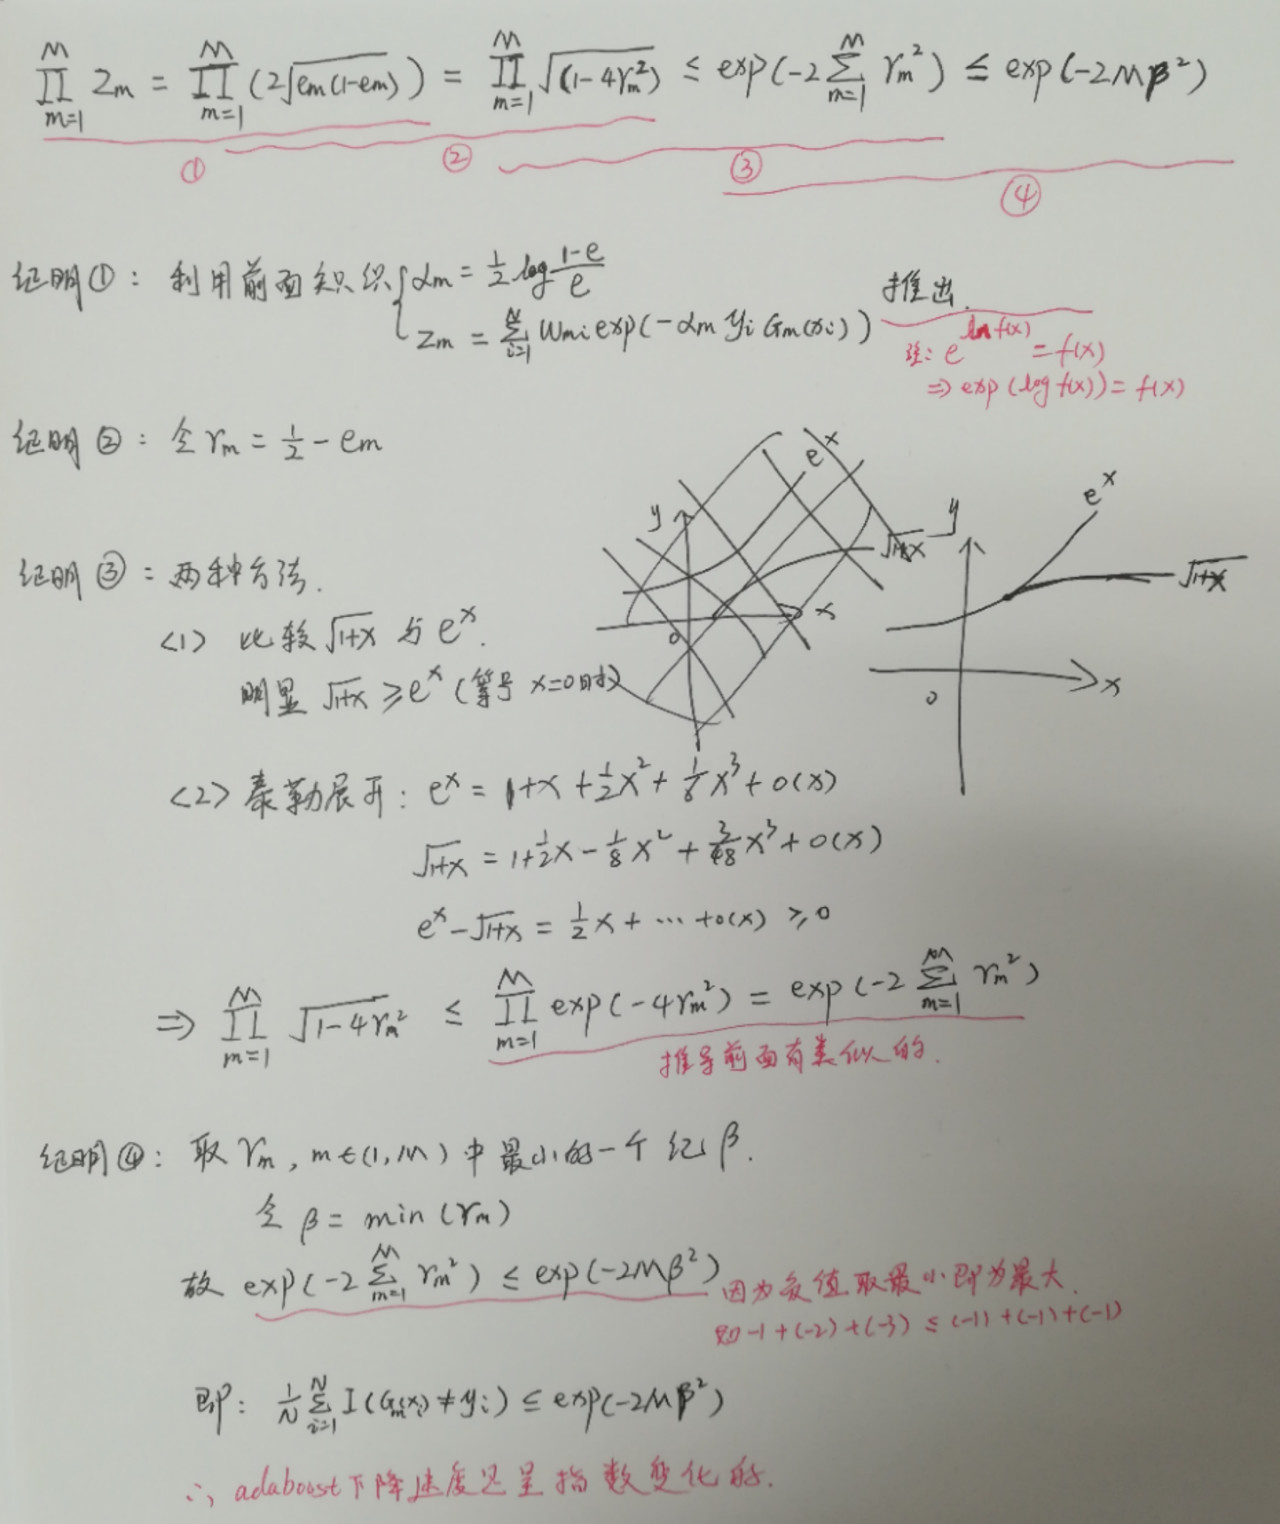 ∏_{m=1}^{M} Zm = ∏_{m=1}^{M} (2√(em(1-em))) = ∏_{m=1}^{M} √(1-4γm²) ≤ exp(-2∑_{m=1}^{M} γm²) ≤ exp(-2Mβ²)
① ② ③ ④
证明①: 利用前面知识 { αm = ½ log (1-e)/e
Zm = ∑_{i=1}^{N} Wmi exp(-αm yi Gm(xi)) 推出.
注: e^{ln f(x)} = f(x)
⇒ exp(log f(x)) = f(x)
证明②: 令 γm = ½ - em
证明③: 两种方法.
<1> 比较 √1+x 与 e^x.
明显 √1+x ≥ e^x (等号 x=0时)
y e^x √1+x x 0
y e^x √1+x x 0
<2> 泰勒展开: e^x = 1+x+½x²+⅙x³+o(x)
√1+x = 1+½x-⅛x²+3/48x³+o(x)
e^x-√1+x = ½x+⋯+o(x) ≥0
⇒ ∏_{m=1}^{M} √1-4γm² ≤ ∏_{m=1}^{M} exp(-4γm²) = exp(-2∑_{m=1}^{M} γm²)
推导前面有类似的.
证明④: 取 γm, m∈(1,M) 中最小的一个 记 β.
令 β = min(γm)
故 exp(-2∑_{m=1}^{M} γm²) ≤ exp(-2Mβ²) 因为负值取最小即为最大.
如 -1+(-2)+(-3) ≤ (-1)+(-1)+(-1)
即: 1/N ∑_{i=1}^{N} I(Gm(xi)≠yi) ≤ exp(-2Mβ²)
∴ adaboost下降速度是呈指数变化的.